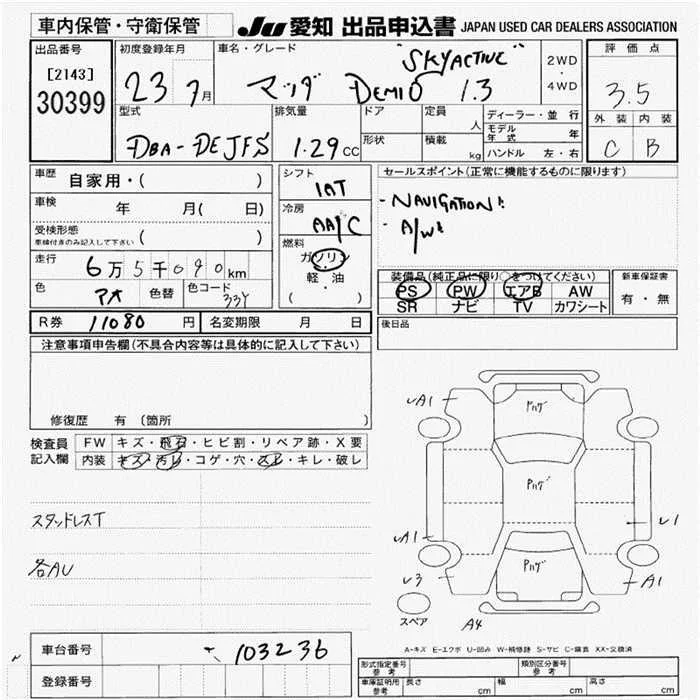 車内保管・守衛保管
JU 愛知 出品申込書 JAPAN USED CAR DEALERS ASSOCIATION
出品番号
[2143]
30399
初度登録年月
23 7月
車名・グレード
"SKYACTIVE"
マツダ DEMIO 1.3
2WD
・
4WD
評価点
3.5
外装 内装
C B
型式
DBA-DEJFS
排気量
1.29cc
ドア
形状
定員
人
積載
kg
ディーラー・並行
モデル年式 年
ハンドル 左・右
車歴
自家用・( )
車検 年 月( 日)
受検形態
車検付きのみ記入して下さい ( )
走行
6万5千090km
色
アオ
色替
色コード
33Y
シフト
IAT
冷房
AA/C
燃料
ガソリン
軽・油
( )
セールスポイント(正常に機能するものに限ります)
- NAVIGATION!
- A/W!
装備品(純正品に限り○をつけてください)
PS PW エアB AW
SR ナビ TV カワシート
新車保証書
有・無
後日品
R券 11080 円 名変期限 月 日
注意事項申告欄(不具合内容等は具体的に記入して下さい)
修復歴 有 〔箇所 〕
検査員
記入欄
FW キズ・飛石・ヒビ割・リペア跡・X要
内装 キズ・汚レ・コゲ・穴・スレ・キレ・破レ
スタッドレスT
各AU
A1
A1
3
1
A1
A4
スペア
A-キズ E-エクボ U-凹み W-補修跡 S-サビ C-腐食 XX-交換済
車台番号 103236
登録番号
形式指定番号
参考
類別区分番号
参考
車庫証明用
参考
長さ cm 幅 cm 高さ cm